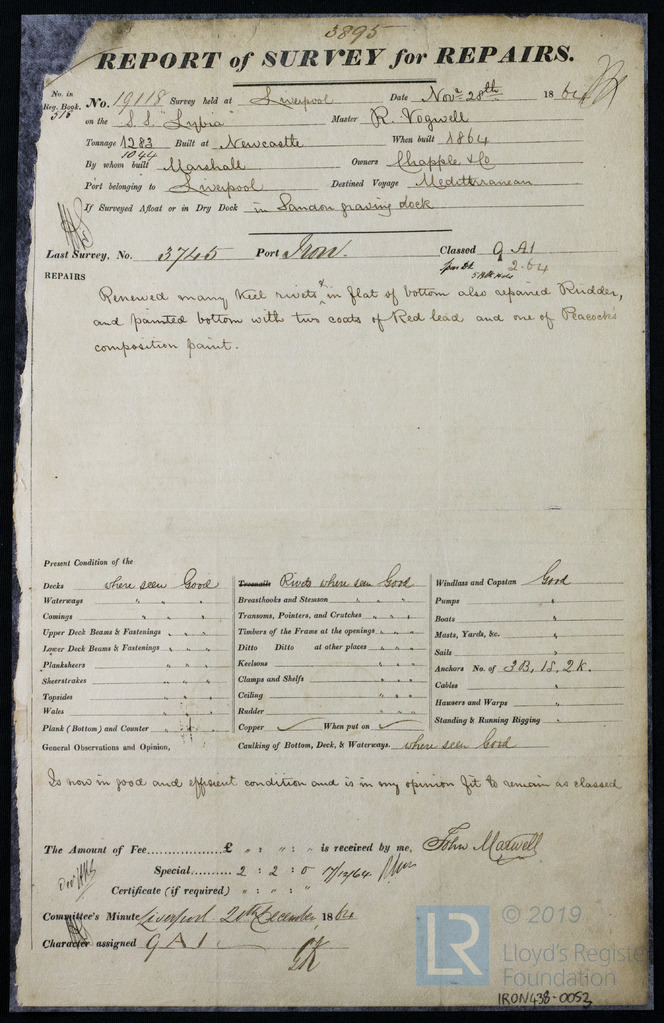 3895
REPORT of SURVEY for REPAIRS.
No. in Reg. Book. 516 No. 19118 Survey held at Liverpool Date Novr 28th 1864
on the S.S. "Lybia" Master R. Vogwell
Tonnage 1283 1044 Built at Newcastle When built 1864
By whom built Marshall Owners Chapple & Co
Port belonging to Liverpool Destined Voyage Mediterranean
If Surveyed Afloat or in Dry Dock in Sandon graving dock
Last Survey, No. 3745 Port Iron. Classed 9 A1
2.64
REPAIRS
Renewed many Keel rivets & in flat of bottom also repaired Rudder,
and painted bottom with two coats of Red lead and one of Peacocks
composition paint.
Present Condition of the
Decks where seen Good
Waterways " " "
Comings " " "
Upper Deck Beams & Fastenings " " "
Lower Deck Beams & Fastenings " " "
Planksheers " " "
Sheerstrakes " " "
Topsides " " "
Wales " " "
Plank (Bottom) and Counter " " "
Treenails Rivets where seen Good
Breasthooks and Stemson " " "
Transoms, Pointers, and Crutches " " "
Timbers of the Frame at the openings " " "
Ditto Ditto at other places " " "
Keelsons " " "
Clamps and Shelfs " " "
Ceiling " " "
Rudder " " "
Copper ✓ When put on ✓
Windlass and Capstan Good
Pumps "
Boats "
Masts, Yards, &c. "
Sails "
Anchors No. of 3B, 1S, 2K.
Cables "
Hawsers and Warps "
Standing & Running Rigging "
General Observations and Opinion, Caulking of Bottom, Deck, & Waterways. where seen Good
Is now in good and efficient condition and is in my opinion fit to remain as classed
The Amount of Fee ............... £ " : " : " is received by me, John Maxwell
Special ......... 2 : 2 : 0 7/12/64
Certificate (if required) " : " : "
Committee's Minute Liverpool 20th December, 1864
Character assigned 9 A 1
LR © 2019
Lloyd's Register
Foundation
IRON438-0053